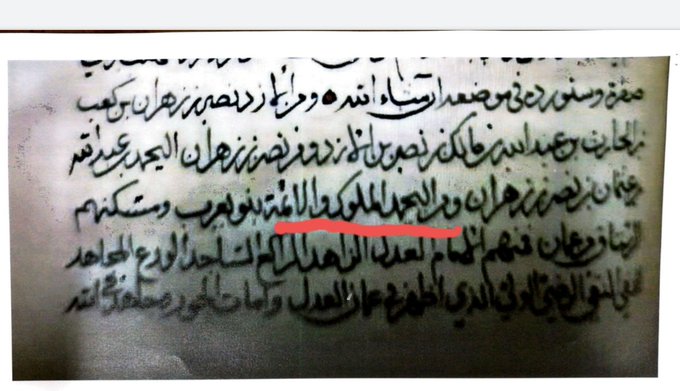 صفرة وسنورده في موضعه ان شاء الله ومن الازد نصر بن زهران بن كعب
بن الحارث بن عبد الله بن مالك بن نصر بن الازد ومن نصر بن زهران اليحمد بن عبد الله
بن عثمان بن نصر بن زهران ومن اليحمد الملوك والائمة بنو يعرب ومسكنهم
من عمان فمنهم الامام العدل الزاهد الراكع الساجد الورع المجاهد
التقي الرضي الولي الذي اظهر في عمان العدل وامات الجور مجاهد في الله